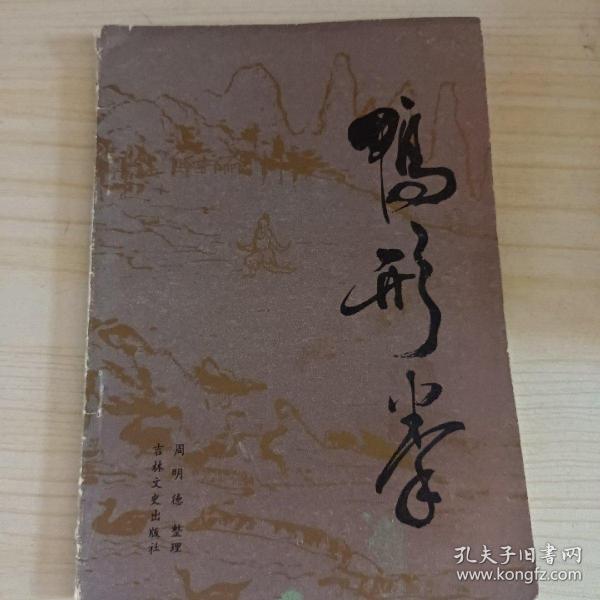 鸭形拳
周明德 整理
吉林文史出版社
孔夫子旧书网
www.kongfz.com